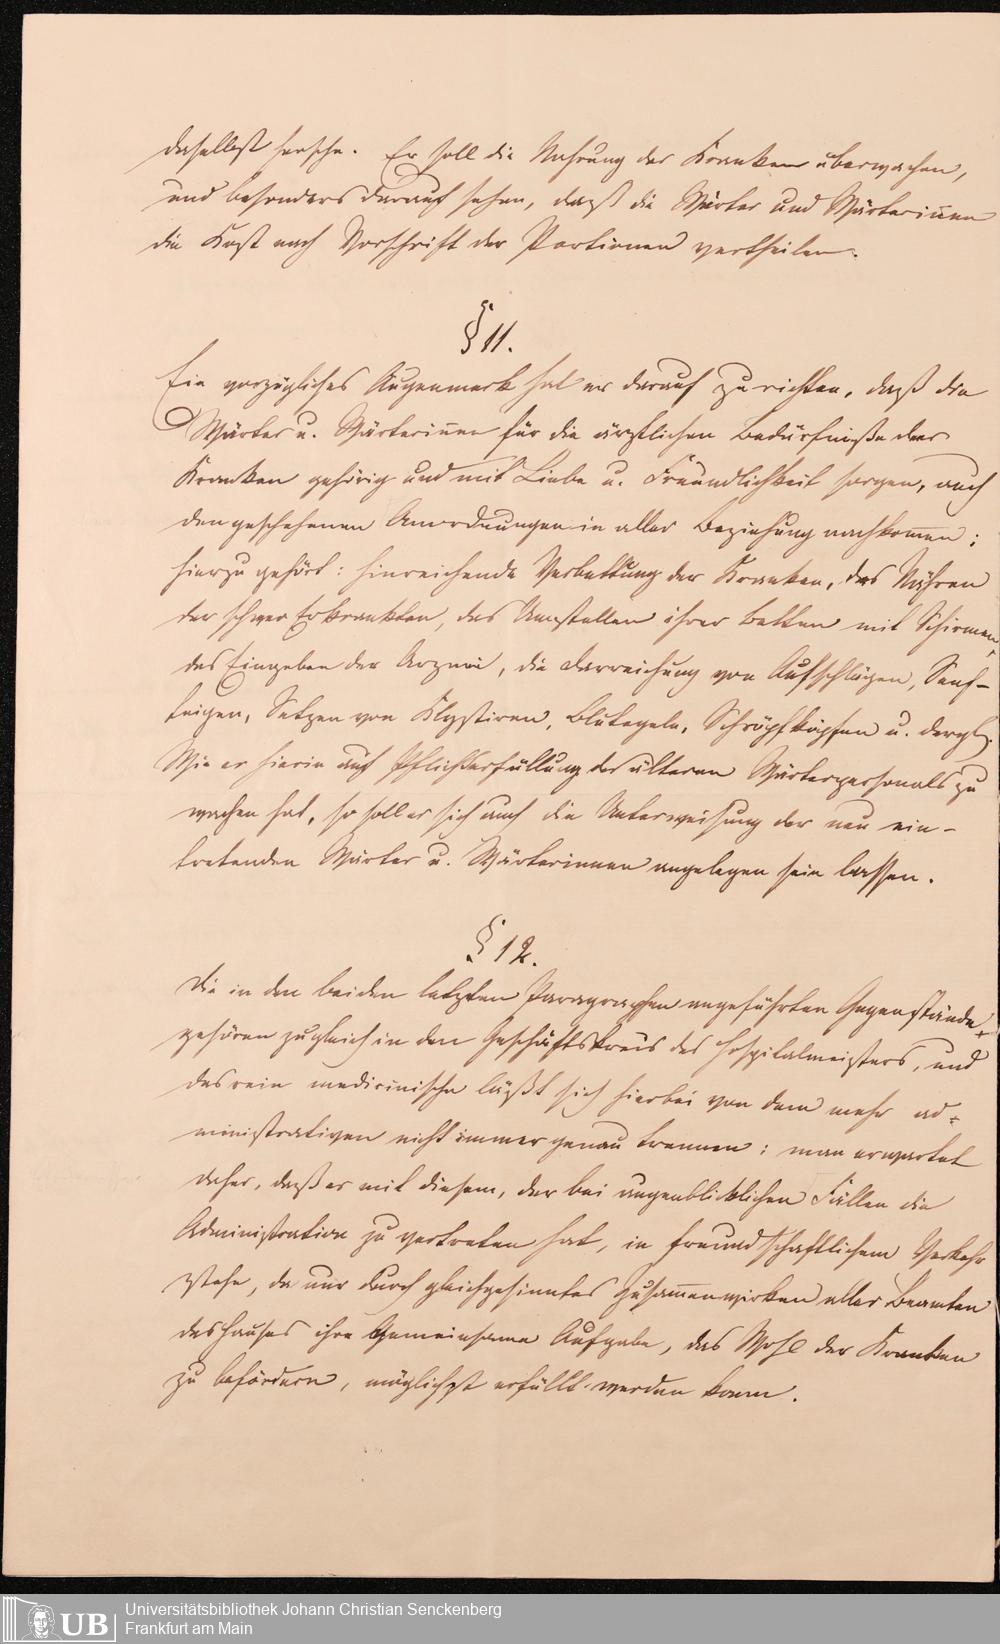 daselbst hersche. Er soll die Nahrung der Kranken überwachen,
und besonders darauf sehen, daß die Wärter und Wärterin̄en
die Kost nach Vorschrift der Portionen vertheilen.
§ 11.
Ein vorzügliches Augenmerk hat er darauf zu richten, daß die
Wärter u. Wärterin̄en für die ärztlichen Bedürfniße der
Kranken gehörig und mit Liebe u. Freundlichkeit sorgen, auch
den geschehenen Anordnungen in aller Beziehung nachkom̄en;
hierzu gehört: hinreichende Verbettung der Kranken, das Nähren
der schwer Erkrankten, das Umstellen ihrer Betten mit Schirmen,
das Eingeben der Arznei, die Darreichung von Aufschlägen, Senf-
teigen, Setzen von Klystiren, Blutegeln, Schröpfköpfen u. dergl.
Wie er hierin auf Pflichterfüllung des älteren Wärterpersonals zu
wachen hat, so soll er sich auch die Unterweisung der neu ein-
tretenden Wärter u. Wärterinnen angelegen sein lassen.
§ 12.
Die in den beiden letzten Paragraphen angeführten Gegenstände
gehören zugleich in den Geschäftskreis des Hospitalmeisters, und
das rein medicinische läßt sich hierbei von dem mehr ad-
ministrativen nicht immer genau trennen; man erwartet
daher, daß er mit diesem, der bei augenblicklichen Fällen die
Administration zu vertreten hat, in freundschaftlichem Verkehr
stehe, da nur durch gleichgesinntes Zusam̄enwirken aller Beamten
des Hauses ihre gemeinsame Aufgabe, das Wohl der Kranken
zu befördern, möglichst erfüllt werden kann.
UB
Universitätsbibliothek Johann Christian Senckenberg
Frankfurt am Main